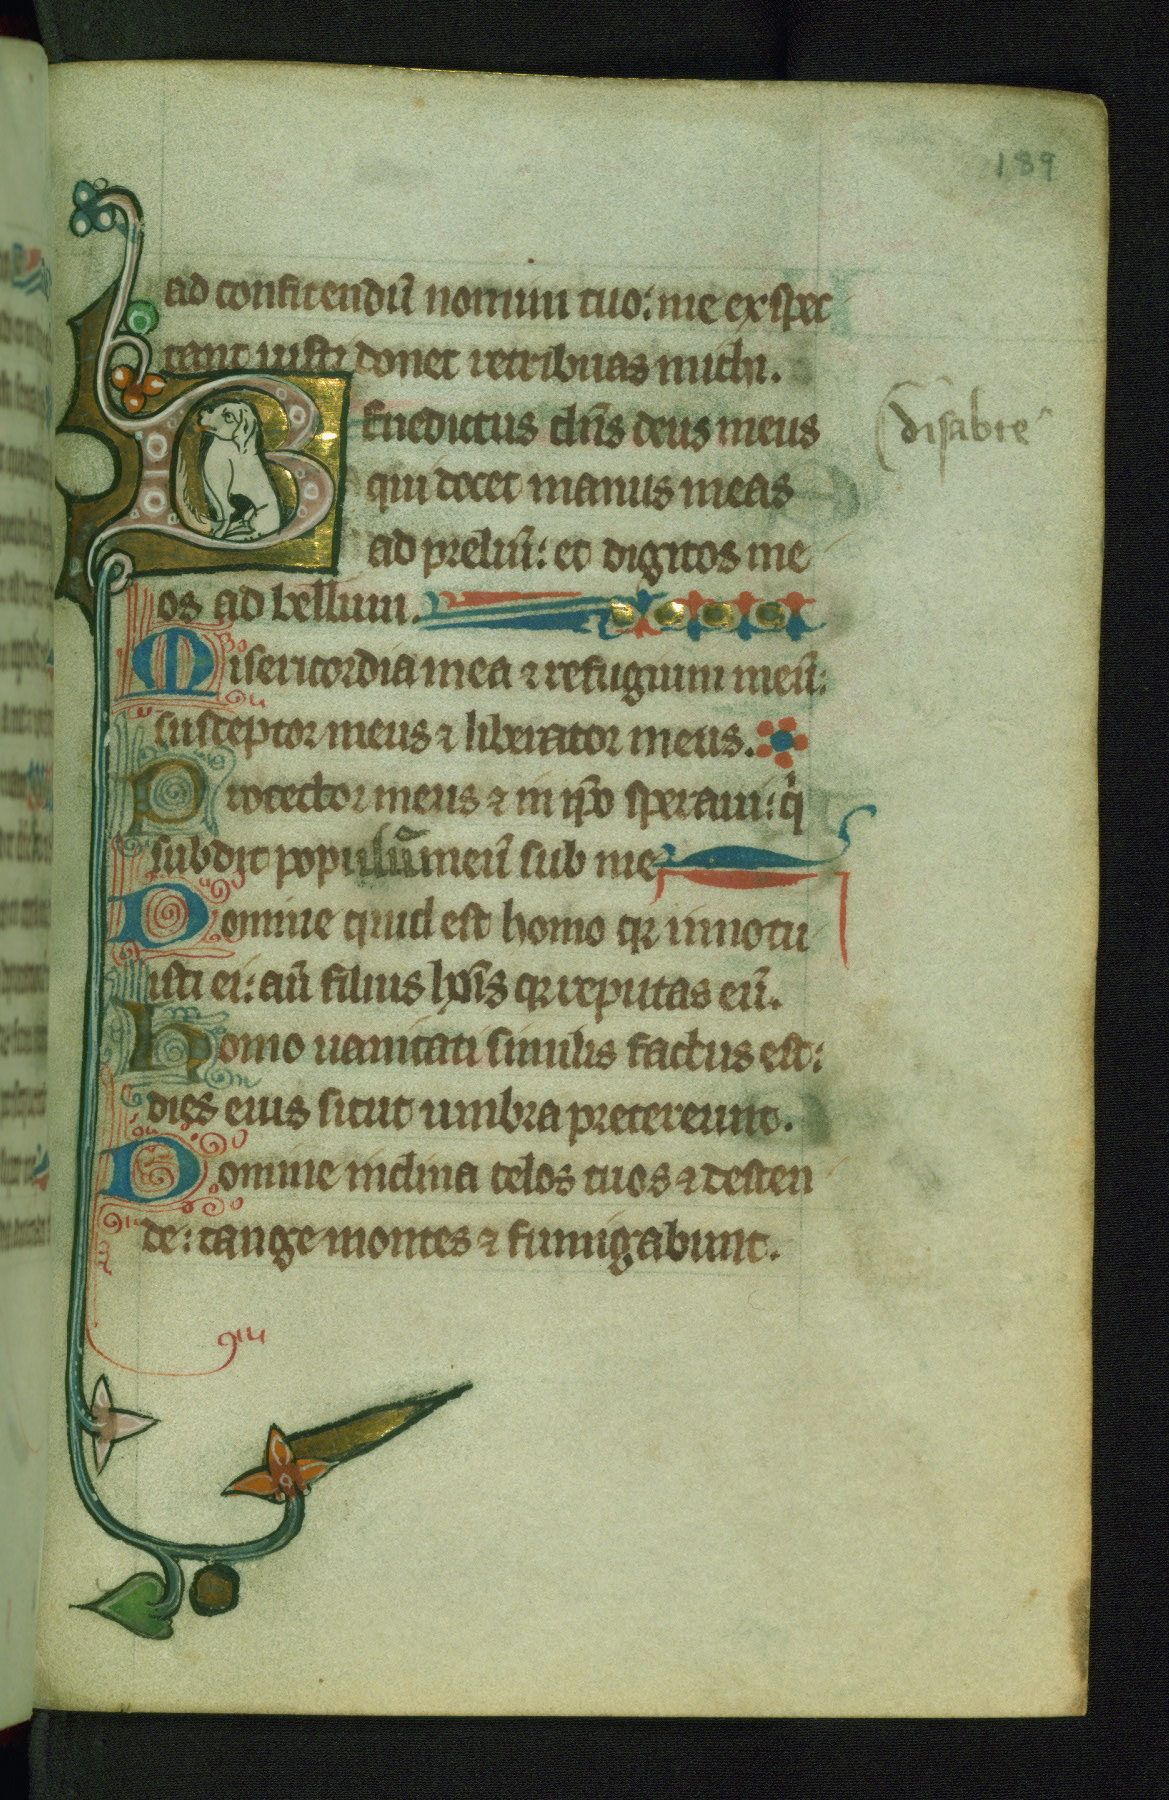 189
ad confitendũ nomini tuo: me expec
tant iusti donec retribuas michi.
Benedictus dñs deus meus
disabte
qui docet manus meas
ad preliũ: et digitos me
os ad bellum.
Misericordia mea ⁊ refugium meũ:
susceptor meus ⁊ liberator meus.
Protector meus ⁊ in ip̃o speraui: q̇
subdit populũ meũ sub me
Domine quid est homo qꝛ innotu
isti ei: aũ filius hoĩs qꝛ reputas eũ.
Homo uanitati similis factus est:
dies eius sicut umbra pretereunt.
Domine inclina celos tuos ⁊ descen
de: tange montes ⁊ fumigabunt.